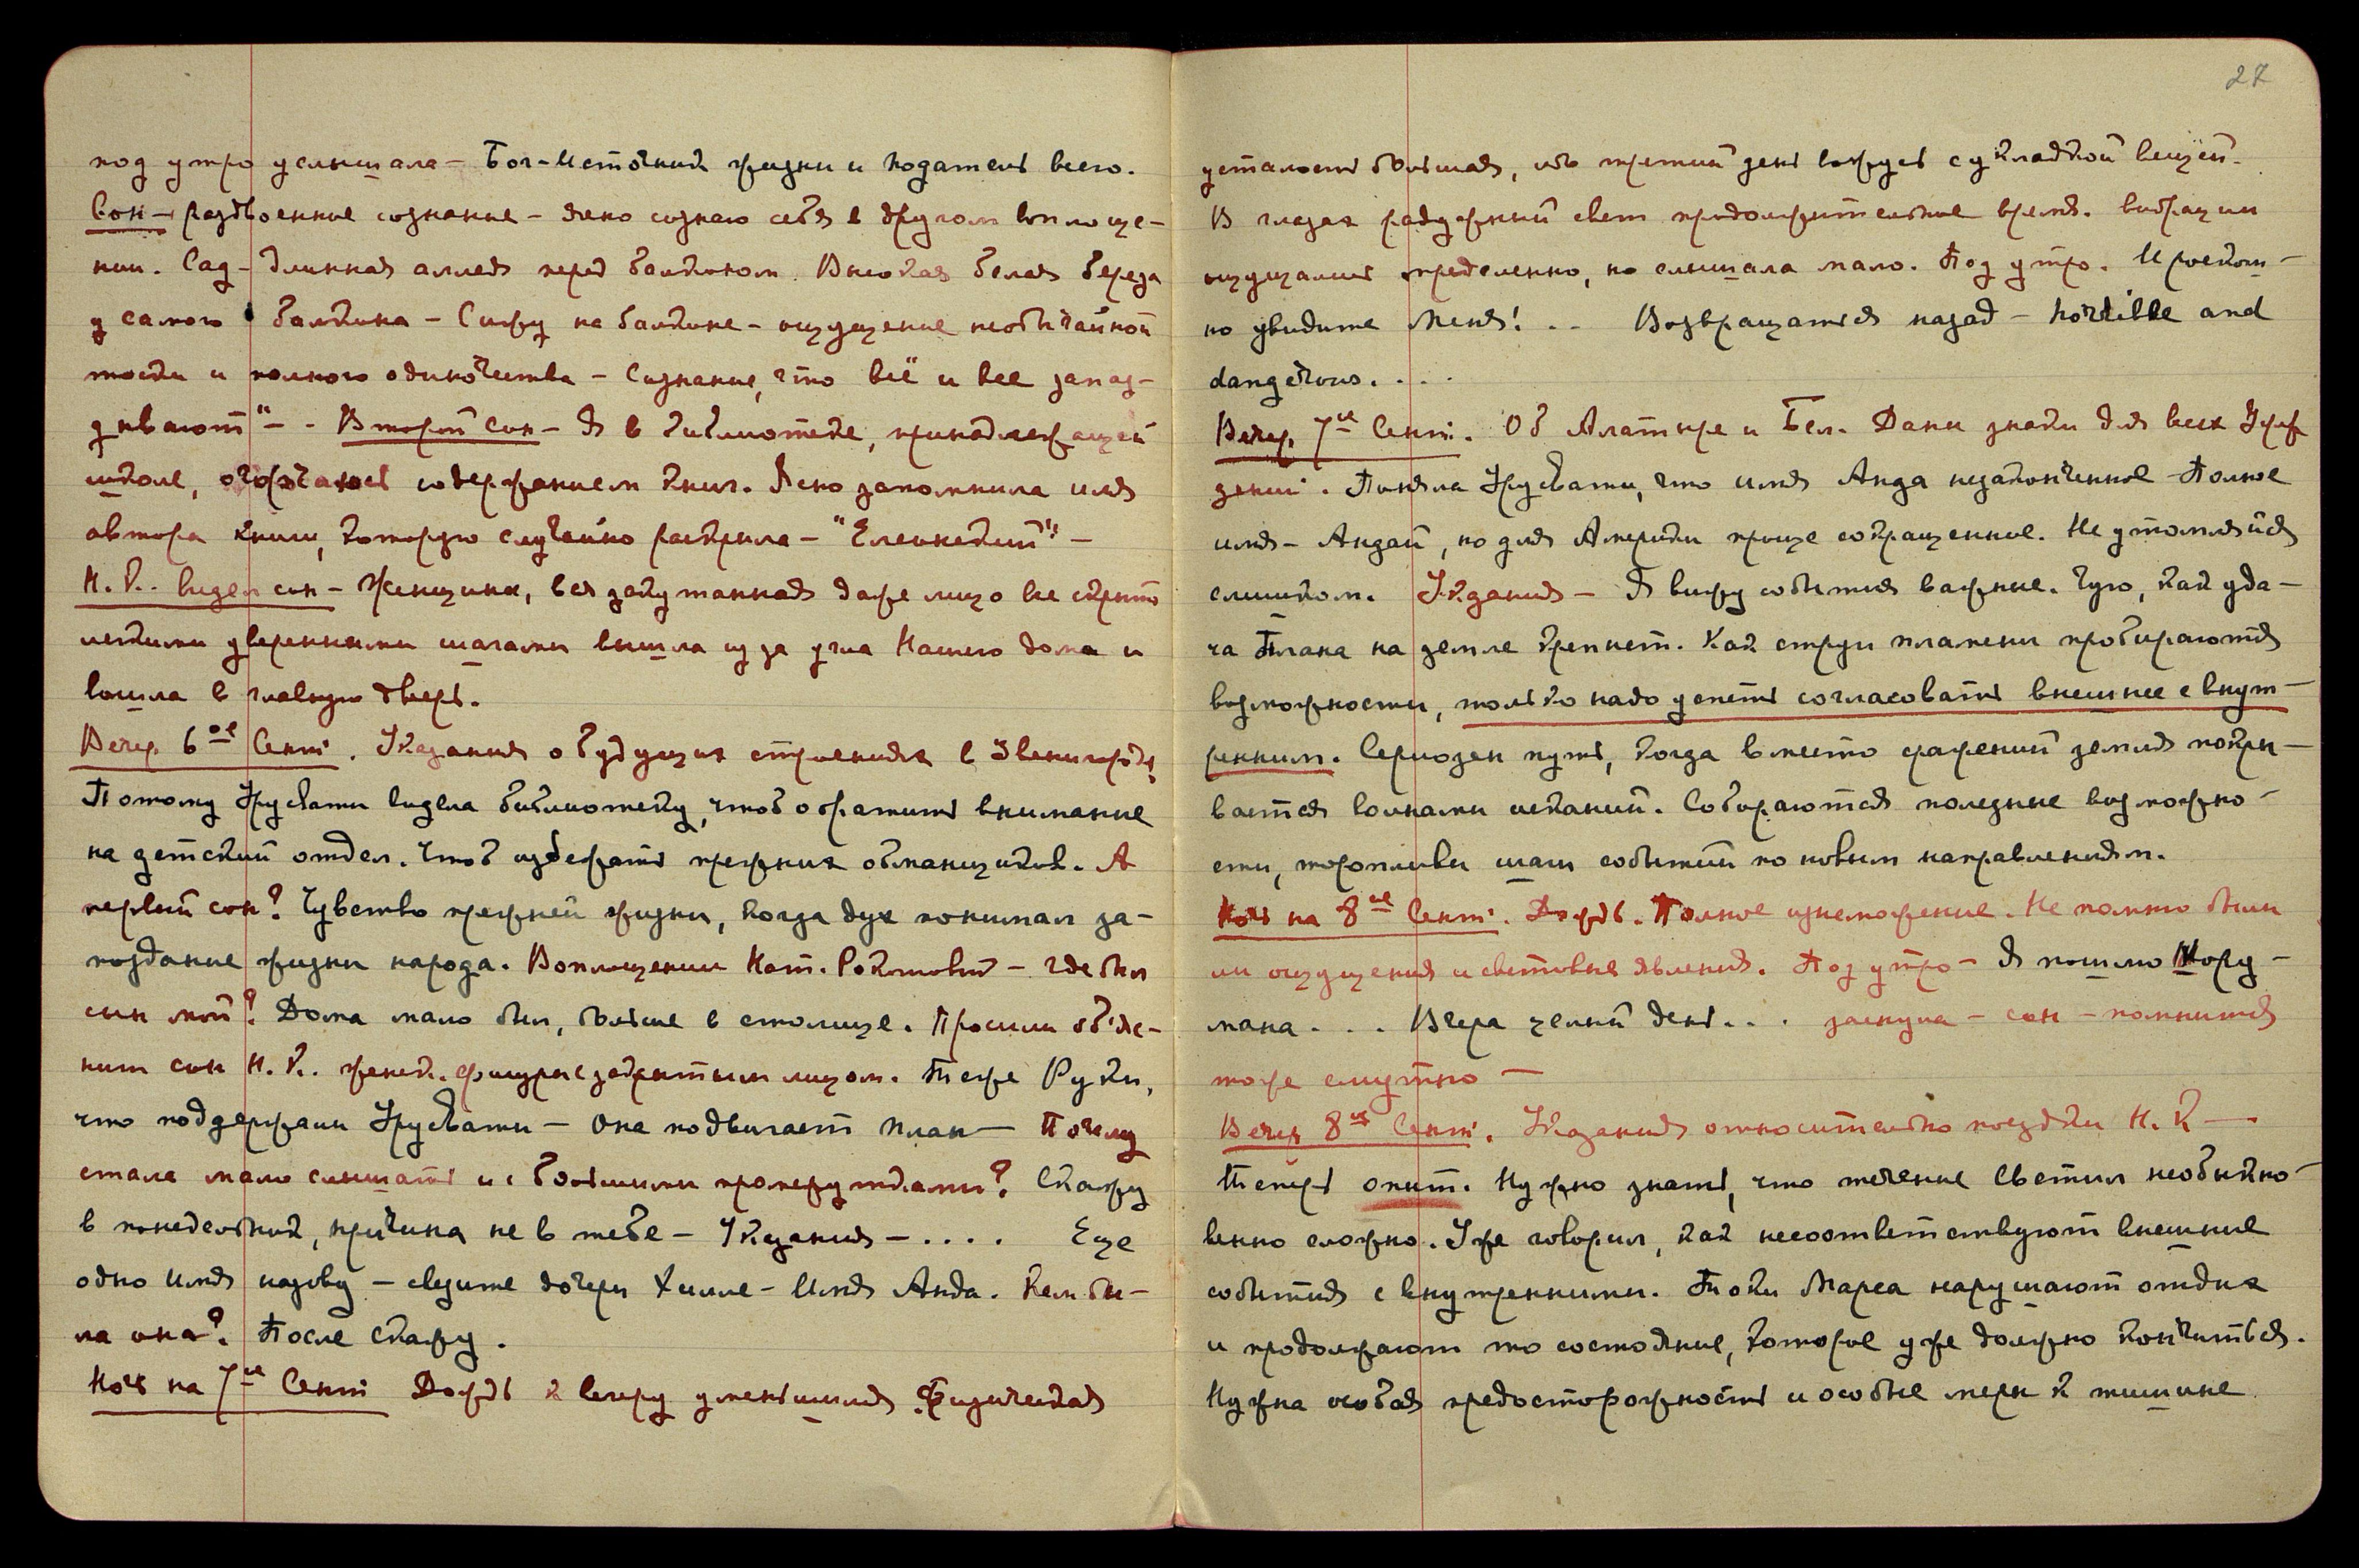 под утро услышала — Бог-Источник жизни и податель всего.
Сон — раздвоенное сознание — ясно сознаю себя в другом воплоще-
нии. Сад — длинная аллея перед балконом. Высокая белая береза
у самого балкона — Сижу на балконе — ощущение необычайной
тоски и полного одиночества — Сознание, что всё и все запаз-
дывают" — . Второй сон — Я в библиотеке, принадлежащей
школе, огорчаюсь содержанием книг. Ясно запомнила имя
автора книги, которую случайно раскрыла — "Еленкский" —
Н.К. видел сон — Женщина, вся закутанная даже лицо все скрыто
легкими уверенными шагами вышла из за угла Нашего дома и
вошла в главную дверь.
Вечер 6ое Сент. Указания о будущих строениях в Звенигороде,
Потому Урусвати видела библиотеку, чтоб обратить внимание
на детский отдел. Чтоб избежать прежних обманщиков. А
первый сон? Чувство прежней жизни, когда дух понимал за-
поздание жизни народа. Воплощении Нат. Рокотовой — где был
сын мой? Дома мало был, больше в столице. Просили объяс-
нить сон Н.К. женск. фигуры с закрытым лицом. Те же Руки,
что поддержали Урусвати — Она подвигает План — Почему
стала мало слышать и с большими промежутками? Скажу
в понедельник, причина не в тебе — Указания — . . . . Еще
одно имя назову — сведите дочери Хилле — Имя Анда. Кем бы-
ла она? После скажу.
Ночь на 7ое Сент Дождь к вечеру уменьшился. Физическая
27
усталость большая, ибо третий день вожусь с укладкой вещей.
В глазах радужный свет продолжительное время. Вибрации
ощущались определенно, но слышала мало. Под утро. И роском-
но увидите Меня! . . Возвращаться назад — horrible and
dangerous. . . .
Вечер 7ое Сент. Об Алатыре и Бел. Даны знаки для всех Учреж
дений. Поняла Урусвати, что имя Анда незаконченное — Полное
имя — Андай, но для Америки проще сокращенное. Не утомляйся
слишком. Указания — Я вижу события важные. Чую, как уда-
ча Плана на земле крепнет. Как струи пламени пробираются
возможности, только надо уметь согласовать внешнее с внут-
ренним. Серьозен путь, когда вместо сражений земля покры-
вается волнами исканий. Собираются полезные возможно-
сти, торопливы шаги событий по новым направлениям.
Ночь на 8ое Сент. Дождь. Полное изнеможение. Не помню были
ли ощущения и световые явления. Под утро — Я пошлю Нору-
мана . . . Вчера целый день . . . заснула — сон — помнится
тоже смутно —
Вечер 8ое Сент. Указания относительно поездки Н.К —.
Теперь опыт. Нужно знать, что течение Светил необыкно-
венно сложно. Уже говорил, как несоответствуют внешние
события с внутренними. Токи Марса нарушают отдых
и продолжают то состояние, которое уже должно кончиться.
Нужна особая предосторожность и особые меры к тишине